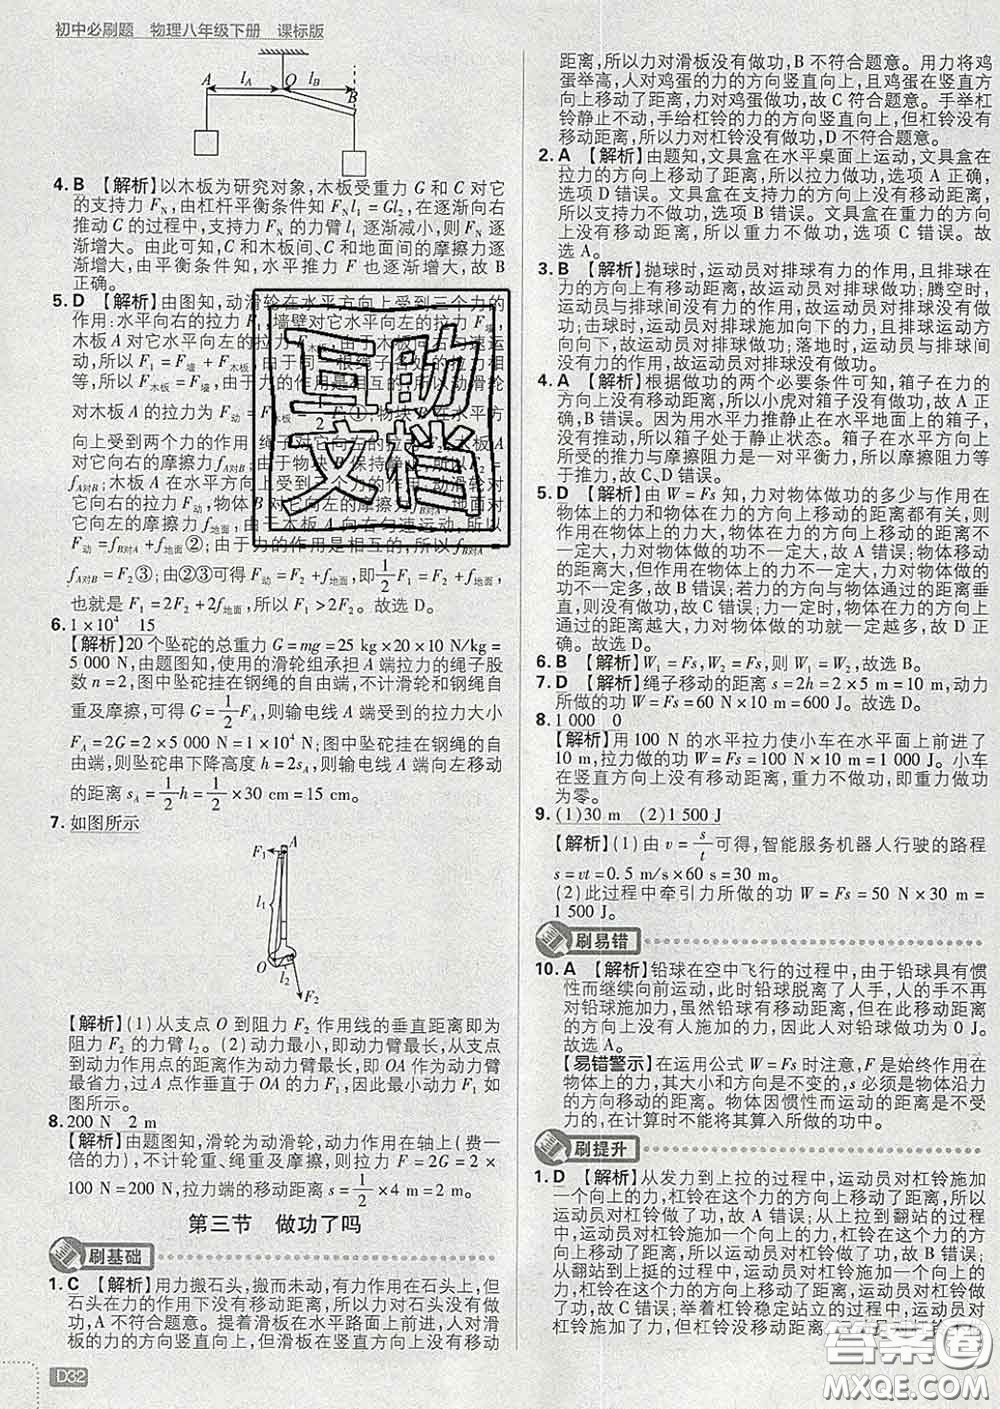 初中必刷题 物理八年级下册 课标版
A
l_A
O
l_B
B
4. B 【解析】以木板为研究对象,木板受重力 G 和 C 对它
的支持力 F_N,由杠杆平衡条件知 F_N l₁ = Gl₂,在逐渐向右
推动 C 的过程中,支持力 F_N 的力臂 l₁ 逐渐减小,则 F_N 逐
渐增大。由此可知,C 和木板间、C 和地面间的摩擦力逐
渐增大,由平衡条件知,水平推力 F 也逐渐增大,故 B
正确。
5. D 【解析】由图知,动滑轮在水平方向上受到三个力的
作用:水平向右的拉力 F₁,墙壁对它水平向左的拉力 F墙,
木板 A 对它水平向左的
动,所以 F₁ = F墙 + F木板,由于同一根绳子
等,所以 F木板 = F墙,由于力的作用是相互的,所以动滑轮
对木板 A 的拉力为 F动 = F木板 = 1/2 F₁①;物块 B 在水平方
向上受到两个力的作用
对它向右的摩擦力 f_A对B;由于物块 保持静 ,所以 F₂ =
f_A对B;木板 A 在水平方向上
对它向右的拉力 F动,物体 B 对它向左的摩擦力
它向左的摩擦力 f地面,由于木板 A 向右匀速运动,所以
F动 = f_B对A + f地面②;由于力的作用是相互的,所以 f_B对A =
f_A对B = F₂③;由②③可得 F动 = F₂ + f地面,即 1/2 F₁ = F₂ + f地面,
也就是 F₁ = 2F₂ + 2f地面,所以 F₁ > 2F₂。故选 D。
6. 1×10⁴ 15
【解析】20 个坠砣的总重力 G = mg = 25 kg×20×10 N/kg =
5 000 N,由题图知,使用的滑轮组承担 A 端拉力的绳子股
数 n = 2,图中坠砣挂在钢绳的自由端,不计滑轮和钢绳自
重及摩擦,可得 G = 1/2 F_A,则输电线 A 端受到的拉力大小
F_A = 2G = 2×5 000 N = 1×10⁴ N;图中坠砣挂在钢绳的自
由端,则坠砣串下降高度 h = 2s_A,则输电线 A 端向左移动
的距离 s_A = 1/2 h = 1/2 × 30 cm = 15 cm。
7. 如图所示
F₁
A
l₁
O
l₂
F₂
【解析】(1)从支点 O 到阻力 F₂ 作用线的垂直距离即为
阻力 F₂ 的力臂 l₂。(2)动力最小,即动力臂最长,从支点
到动力作用点的距离作为动力臂最长,即 OA 作为动力臂
最省力,过 A 点作垂直于 OA 的力 F₁,因此最小动力 F₁
如图所示。
8. 200 N 2 m
【解析】由题图知,滑轮为动滑轮,动力作用在轴上(费一
倍的力),不计轮重、绳重及摩擦,则拉力 F = 2G = 2×
100 N = 200 N,拉力端的移动距离 s = 1/2 × 4 m = 2 m。
第三节 做功了吗
刷基础
1. C 【解析】用力搬石头,搬而未动,有力作用在石头上,但
石头在力的作用下没有移动距离,所以力对石头没有做
功,A 不符合题意。提着滑板在水平路面上前行,人对滑
板的力的方向竖直向上,但滑板在竖直方向上没有移动
D32
距离,所以力对滑板没有做功,B 不符合题意。用力将鸡
蛋举高,人对鸡蛋的力的方向竖直向上,且鸡蛋在竖直方
向上移动了距离,力对鸡蛋做功,故 C 符合题意。手举杠
铃静止不动,手给杠铃的力的方向竖直向上,但杠铃没有
移动距离,所以力对杠铃没有做功,D 不符合题意。
2. A 【解析】由题知,文具盒在水平桌面上运动,文具盒在
拉力的方向上移动了距离,所以拉力做功,选项 A 正确,
选项 D 错误。文具盒在支持力的方向上没有移动距离,
所以支持力不做功,选项 B 错误。文具盒在重力的方向
上没有移动距离,所以重力不做功,选项 C 错误。故
选 A。
3. B 【解析】抛球时,运动员对排球有力的作用,且排球在
力的方向上移动了距离,故运动员对排球做功;腾空时,
运动员与排球间没有力的作用,故运动员对排球没有做
功;击球时,运动员对排球施加向下的力,且排球运动方
向向下,故运动员对排球做功;落地时,运动员与排球间
没有力的作用,故运动员对排球没有做功。
4. A 【解析】根据做功的两个必要条件可知,箱子在力的
方向上没有移动距离,所以小虎对箱子没有做功,故 A 正
确,B 错误。因为用水平力推静止在水平地面上的箱子,
没有推动,所以箱子处于静止状态。箱子在水平方向上
所受的推力与摩擦阻力是一对平衡力,所以摩擦阻力等
于推力,故 C、D 错误。
5. D 【解析】由 W = Fs 知,力对物体做功的多少与作用在
物体上的力和物体在力的方向上移动的距离都有关,则
作用在物体上的力大,物体在力的方向上移动的距离不
一定大,力对物体做的功不一定大,故 A 错误;物体移动
的距离大,作用在物体上的力不一定大,力对物体做的
功不一定多,故 B 错误;若力的方向与物体通过的距离垂
直,则没有做功,故 C 错误;力一定时,物体在力的方向上
通过的距离越大,力对物体做的功就一定越多,故 D
正确。故选 D。
6. B 【解析】W₁ = Fs,W₂ = Fs,则 W₁ = W₂,故选 B。
7. D 【解析】绳子移动的距离 s = 2h = 2×5 m = 10 m,动力
所做的功 W = Fs = 60 N×10 m = 600 J。故选 D。
8. 1 000 0
【解析】用 100 N 的水平拉力使小车在水平面上前进了
10 m,拉力做的功 W = Fs = 100 N×10 m = 1 000 J。小车
在竖直方向上没有移动距离,重力不做功,即重力做功
为零。
9. (1)30 m (2)1 500 J
【解析】(1)由 v = s/t 可得,智能服务机器人行驶的路程
s = vt = 0.5 m/s×60 s = 30 m;
(2)此过程中牵引力所做的功 W = Fs = 50 N×30 m =
1 500 J。
刷易错
10. A 【解析】铅球在空中飞行的过程中,由于铅球具有惯
性而继续向前运动,此时铅球脱离了人手,人的手不再
对铅球施加力,虽然铅球有移动的距离,但在此移动的
距离上没有人施加的力,因此人对铅球做功为 0 J。
故选 A。
【易错警示】在运用公式 W = Fs 时注意,F 是始终作用在
物体上的力,其大小和方向是不变的,s 必须是物体沿力
的方向移动的距离。物体因惯性而运动的距离是不受力
的,在计算时不能将其算入所做的功中。
刷提升
1. D 【解析】从发力到上拉的过程中,运动员对杠铃施加
一个向上的力,杠铃在这个力的方向上移动了距离,所以
运动员对杠铃做了功,故 A 错误;从上拉到翻站的过程
中,运动员对杠铃施加一个向上的力,杠铃在这个力的方
向上移动了距离,所以运动员对杠铃做了功,故 B 错误;
从翻站到上挺的过程中,运动员对杠铃施加一个向上的
力,杠铃在这个力的方向上移动了距离,所以运动员对杠
铃做了功,故 C 错误;举着杠铃稳定站立的过程中,运动员
对杠铃施加了力,但杠铃没移动距离,
互助
文档
答案圈
MXQE.COM